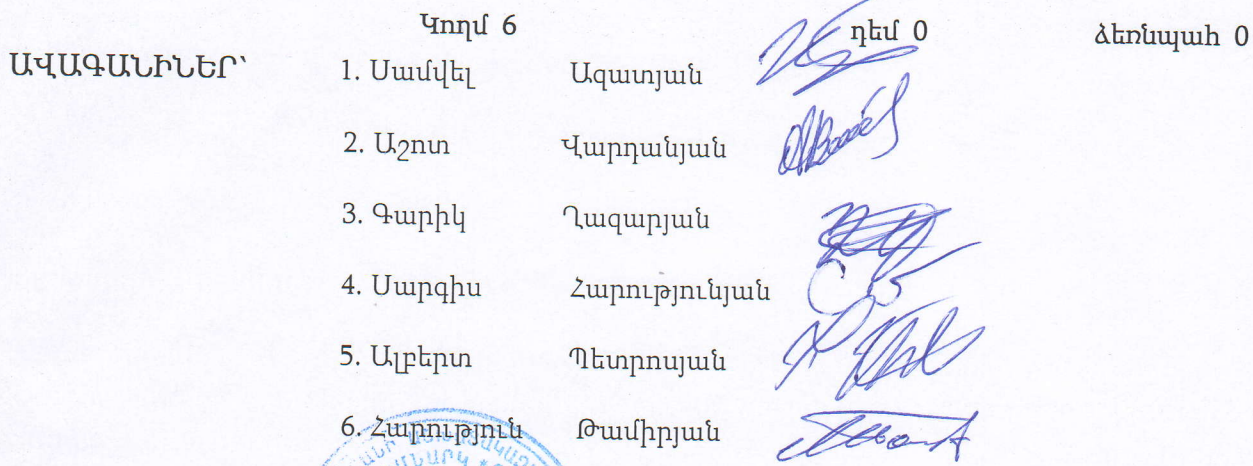 Կողմ 6 դեմ 0 ձեռնպահ 0
ԱՎԱԳԱՆԻՆԵՐ՝ 1. Սամվել Ազատյան
2. Աշոտ Վարդանյան
3. Գարիկ Ղազարյան
4. Սարգիս Հարությունյան
5. Ալբերտ Պետրոսյան
6. Հարություն Թամիրյան